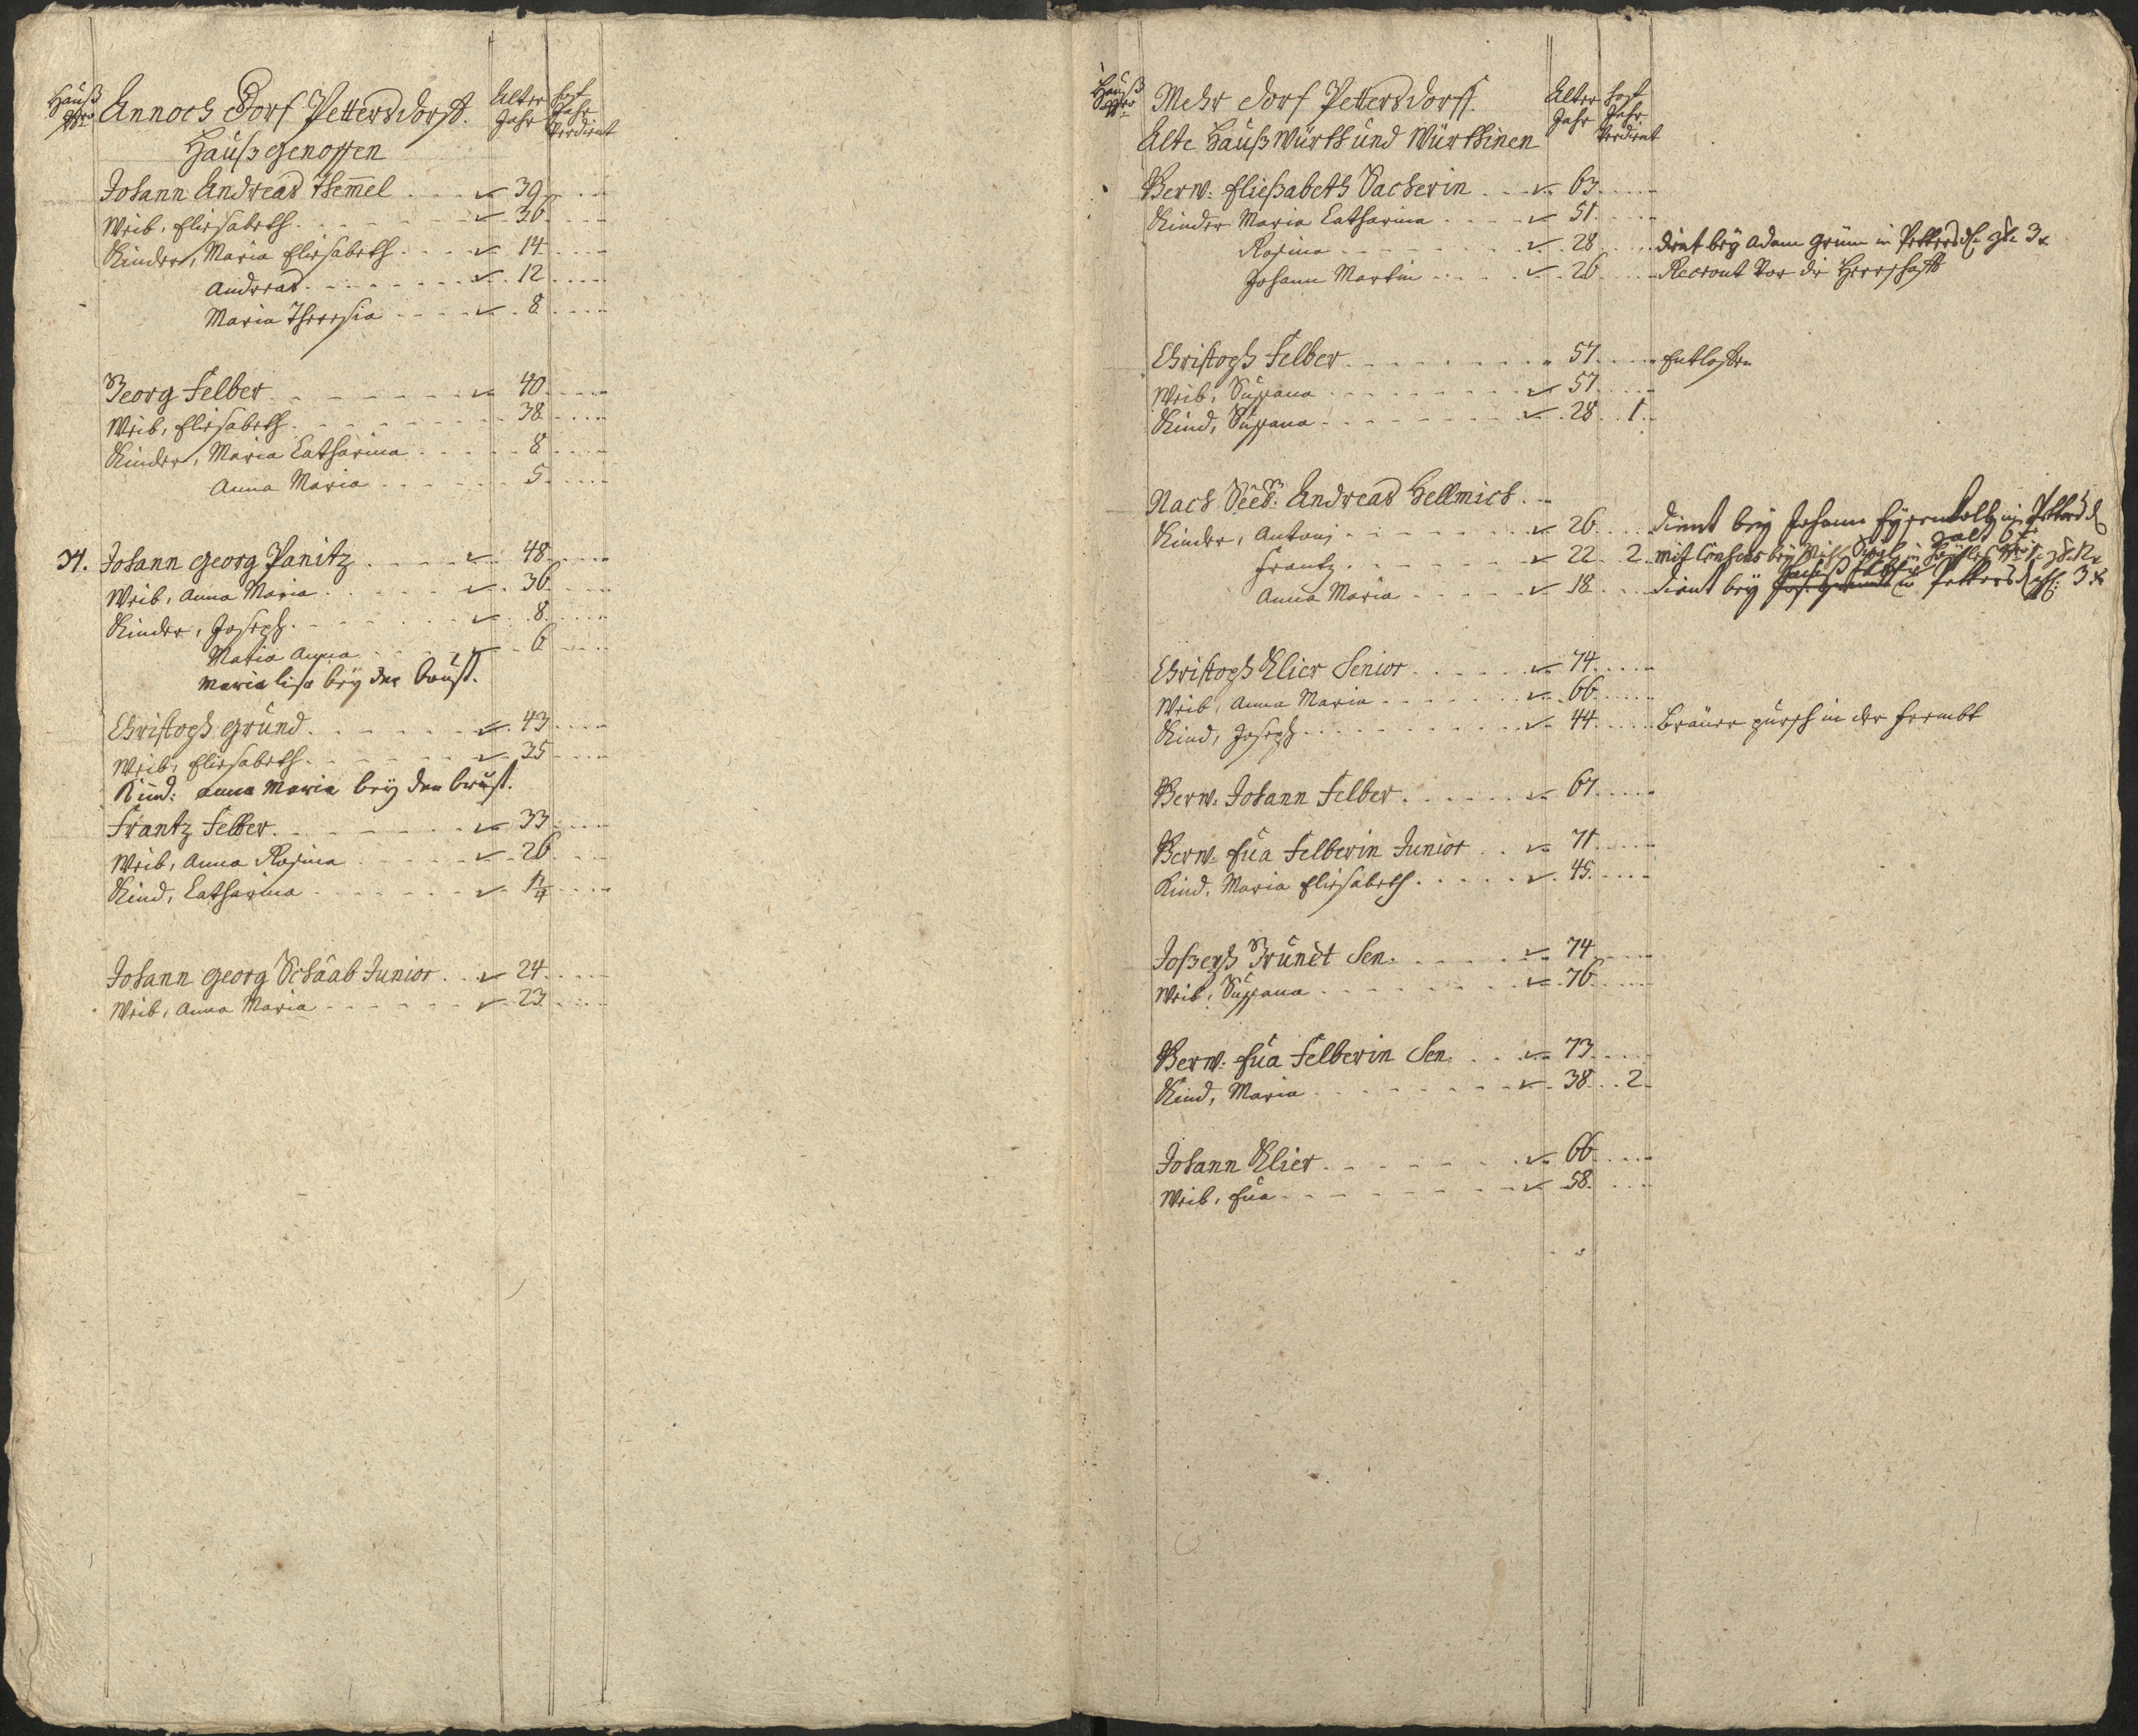 Hauß Nro Annoch Dorf Pettersdorff. Alter Jahr hat Jahr Verdient
Haußgenossen
Johann Andreas Themel 39
Weib, Eliesabeth 36
Kinder, Maria Eliesabeth 14
Andreas 12
Maria Theresia 8
Georg Felber 40
Weib, Eliesabeth 38
Kinder, Maria Catharina 8
Anna Maria 5
71. Johann Georg Panitz 48
Weib, Anna Maria 36
Kinder, Joseph 8
Maria Anna 6
Maria Lisa bey der brust.
Christoph Grund 43
Weib, Eliesabeth 35
Kind: Anna Maria bey der brust.
Frantz Felber 33
Weib, Anna Rosina 26
Kind, Catharina
Johann Georg Schaab Junior 24
Weib, Anna Maria 23
Hauß Nro Mehr Dorf Pettersdorff. Alter Jahr hat Jahr Verdient
Alte Haußwürth und Würthinen
Verw: Eließabeth Sacherin 63
Kinder Maria Catharina 51
Rosina 28 dient bey Adam Grün in Pettersd.
Johann Martin 26 Recrout vor die Herrschafft
Christoph Felber 57 Entlassen
Weib, Susana 57
Kind, Susana 28 1
Nach Seel: Andreas Hellmich
Kinder, Antoni 26 dient bey Johann
Frantz 22 2 mit Consens bey Mich.
Anna Maria 18 dient bey in Pettersd.
Christoph Klier Senior 74
Weib, Anna Maria 66
Kind, Joseph 44 Bräuer pursch in der frembt
Verw: Johann Felber 67
Verw: Eua Felberin Junior 71
Kind, Maria Eliesabeth 45
Joßeph Grundt Sen. 74
Weib, Susana 76
Verw: Eua Felberin Sen. 73
Kind, Maria 38 2
Johann Klier 66
Weib, Eua 58